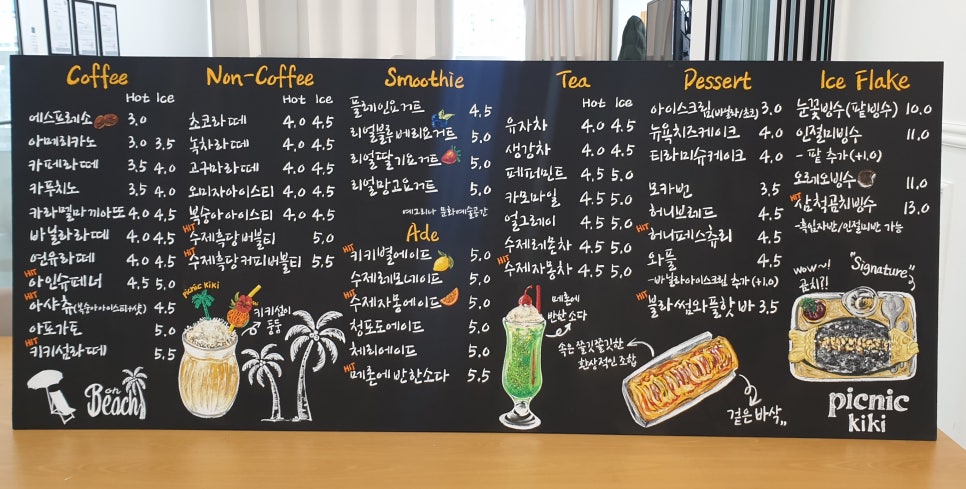 Coffee
Hot Ice
에스프레소 3.0
아메리카노 3.0 3.5
카페라떼 3.5 4.0
카푸치노 3.5 4.0
카라멜마끼아또 4.0 4.5
바닐라라떼 4.0 4.5
연유라떼 4.0 4.5
HIT 아인슈페너 4.5 5.0
HIT 아샷츄(복숭아아이스티+샷) 4.5
아포가토 5.0
HIT 키키섬라떼 5.5
on
Beach
Non-Coffee
Hot Ice
초코라떼 4.0 4.5
녹차라떼 4.0 4.5
고구마라떼 4.0 4.5
오미자아이스티 4.0 4.5
복숭아아이스티 4.0 4.5
HIT 수제흑당버블티 5.0
HIT 수제흑당커피버블티 5.5
picnic kiki
키키섬이
둥둥
Smoothie
플레인요거트 4.5
리얼블루베리요거트 5.0
리얼딸기요거트 5.0
리얼망고요거트 5.0
예그리나 문화예술공간
Ade
HIT 키키별에이드 5.0
수제레모네이드 5.0
HIT 수제자몽에이드 5.0
청포도에이드 5.0
체리에이드 5.0
HIT 메론에반한소다 5.5
Tea
Hot Ice
유자차 4.0 4.5
생강차 4.0 4.5
페퍼민트 4.5 5.0
카모마일 4.5 5.0
얼그레이 4.5 5.0
수제레몬차 4.5 5.0
HIT 수제자몽차 4.5 5.0
메론에
반한 소다
Dessert
아이스크림(바닐라/초코) 3.0
뉴욕치즈케이크 4.0
티라미수케이크 4.0
모카번 3.5
허니브레드 4.5
HIT 허니페스츄리 4.5
와플 4.5
-바닐라아이스크림 추가 (+1.0)
HIT 블라썸와플핫바 3.5
속은 쫄깃쫄깃한
환상적인 조합
겉은 바삭,,
Ice Flake
눈꽃빙수(팥빙수) 10.0
인절미빙수 11.0
- 팥 추가(+1.0)
오레오빙수 11.0
HIT 삼척곰치빙수 13.0
-흑임자반/인절미반 가능
wow~!
곰치?!
"Signature"
picnic
kiki